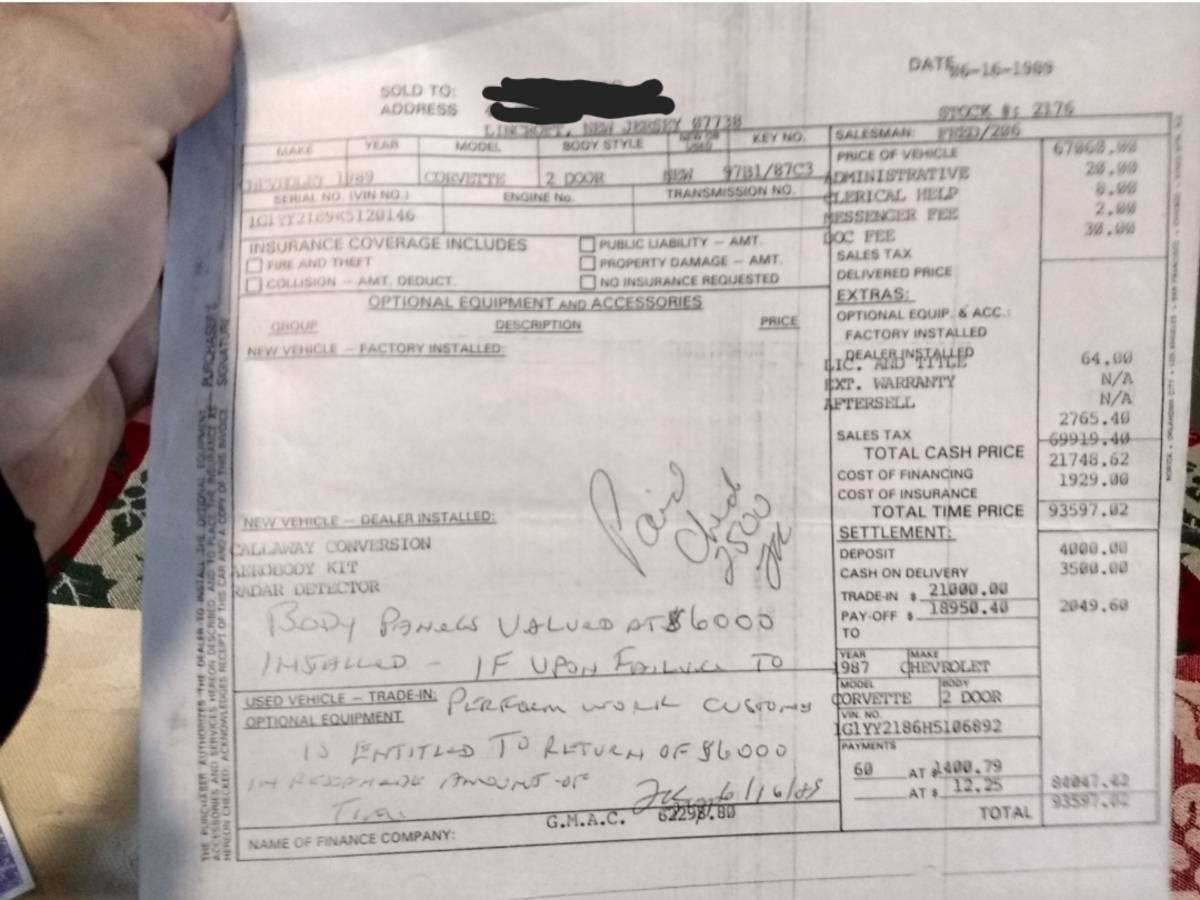 DATE 06-16-1989
SOLD TO:
ADDRESS
LINCROFT, NEW JERSEY 07738
STOCK #: 2176
MAKE YEAR MODEL BODY STYLE NEW OR USED KEY NO.
CHEVROLET 1989 CORVETTE 2 DOOR NEW 97B1/87C3
SERIAL NO. (VIN NO.) ENGINE No. TRANSMISSION NO.
1G1YY2189K5120146
INSURANCE COVERAGE INCLUDES
FIRE AND THEFT
COLLISION — AMT. DEDUCT.
PUBLIC LIABILITY — AMT.
PROPERTY DAMAGE — AMT.
NO INSURANCE REQUESTED
OPTIONAL EQUIPMENT AND ACCESSORIES
GROUP DESCRIPTION PRICE
NEW VEHICLE — FACTORY INSTALLED:
NEW VEHICLE — DEALER INSTALLED:
CALLAWAY CONVERSION
AEROBODY KIT
RADAR DETECTOR
Paid
2500
BODY PANELS VALUED AT $6000
INSTALLED - IF UPON FAILURE TO
USED VEHICLE — TRADE-IN: PERFORM WORK
OPTIONAL EQUIPMENT
IS ENTITLED TO RETURN OF $6000
AMOUNT OF
6/16/89
G.M.A.C. 62298.80
NAME OF FINANCE COMPANY:
SALESMAN: FRED/206
PRICE OF VEHICLE 67060.00
ADMINISTRATIVE 20.00
CLERICAL HELP 8.00
MESSENGER FEE 2.00
DOC FEE 30.00
SALES TAX
DELIVERED PRICE
EXTRAS:
OPTIONAL EQUIP. & ACC.:
FACTORY INSTALLED
DEALER INSTALLED
LIC. AND TITLE 64.00
EXT. WARRANTY N/A
AFTERSELL N/A
SALES TAX 2765.40
TOTAL CASH PRICE 69919.40
COST OF FINANCING 21748.62
COST OF INSURANCE 1929.00
TOTAL TIME PRICE 93597.02
SETTLEMENT:
DEPOSIT 4000.00
CASH ON DELIVERY 3500.00
TRADE-IN $ 21000.00
PAY-OFF $ 18950.40 2049.60
TO
YEAR MAKE
1987 CHEVROLET
MODEL BODY
CORVETTE 2 DOOR
VIN. NO.
1G1YY2186H5106892
PAYMENTS
60 AT $ 1400.79
AT $ 12.25 84047.42
TOTAL 93597.02
THE PURCHASER AUTHORIZES THE DEALER TO INSTALL THE OPTIONAL EQUIPMENT,
ACCESSORIES AND SERVICES HEREON DESCRIBED, AND TO PLACE THE INSURANCE AS
HEREON CHECKED. ACKNOWLEDGES RECEIPT OF THIS CAR AND A COPY OF THIS INVOICE.
PURCHASER'S
SIGNATURE